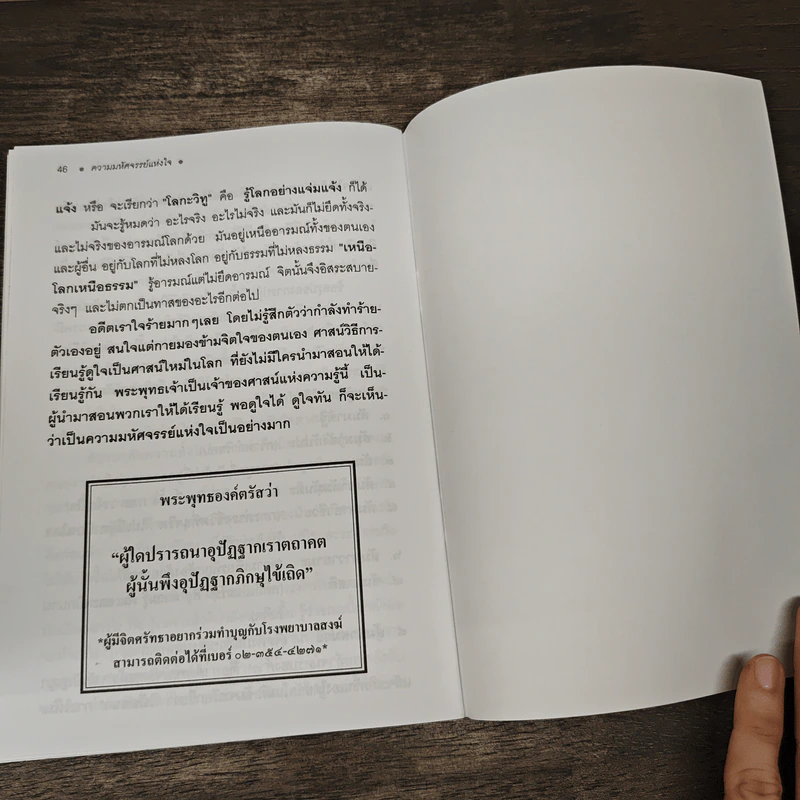 46 • ความมหัศจรรย์แห่งใจ •
แจ้ง หรือ จะเรียกว่า "โลกะวิทู" คือ รู้โลกอย่างแจ่มแจ้ง ก็ได้
มันจะรู้หมดว่า อะไรจริง อะไรไม่จริง และมันก็ไม่ยึดทั้งจริง-
และไม่จริงของอารมณ์โลกด้วย มันอยู่เหนืออารมณ์ทั้งของตนเอง
และผู้อื่น อยู่กับโลกที่ไม่หลงโลก อยู่กับธรรมที่ไม่หลงธรรม "เหนือ-
โลกเหนือธรรม" รู้อารมณ์แต่ไม่ยึดอารมณ์ จิตนั้นจึงอิสระสบาย-
จริงๆ และไม่ตกเป็นทาสของอะไรอีกต่อไป
อดีตเราใจร้ายมากๆเลย โดยไม่รู้สึกตัวว่ากำลังทำร้าย-
ตัวเองอยู่ สนใจแต่กายมองข้ามจิตใจของตนเอง ศาสน์วิธีการ-
เรียนรู้ดูใจเป็นศาสน์ใหม่ในโลก ที่ยังไม่มีใครนำมาสอนให้ได้-
เรียนรู้กัน พระพุทธเจ้าเป็นเจ้าของศาสน์แห่งความรู้นี้ เป็น-
ผู้นำมาสอนพวกเราให้ได้เรียนรู้ พอดูใจได้ ดูใจทัน ก็จะเห็น-
ว่าเป็นความมหัศจรรย์แห่งใจเป็นอย่างมาก
พระพุทธองค์ตรัสว่า
"ผู้ใดปรารถนาอุปัฏฐากเราตถาคต
ผู้นั้นพึงอุปัฏฐากภิกษุไข้เถิด"
*ผู้มีจิตศรัทธาอยากร่วมทำบุญกับโรงพยาบาลสงฆ์
สามารถติดต่อได้ที่เบอร์ ๐๒-๓๕๔-๔๒๗๑*